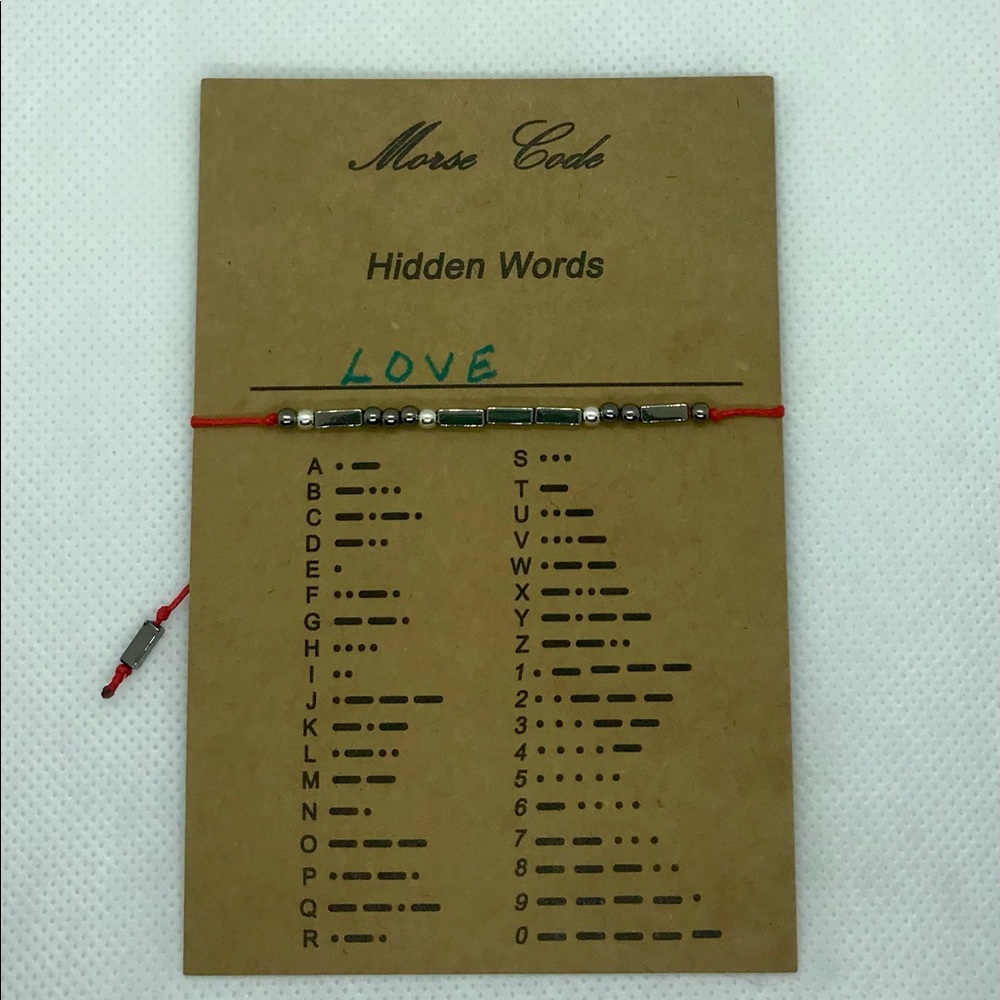 Morse Code
Hidden Words
LOVE
A •—
B —•••
C —•—•
D —••
E •
F ••—•
G ——•
H ••••
I ••
J •———
K —•—
L •—••
M ——
N —•
O ———
P •——•
Q ——•—
R •—•
S •••
T —
U ••—
V •••—
W •——
X —••—
Y —•——
Z ——••
1 •————
2 ••———
3 •••——
4 ••••—
5 •••••
6 —••••
7 ——•••
8 ———••
9 ————•
0 —————